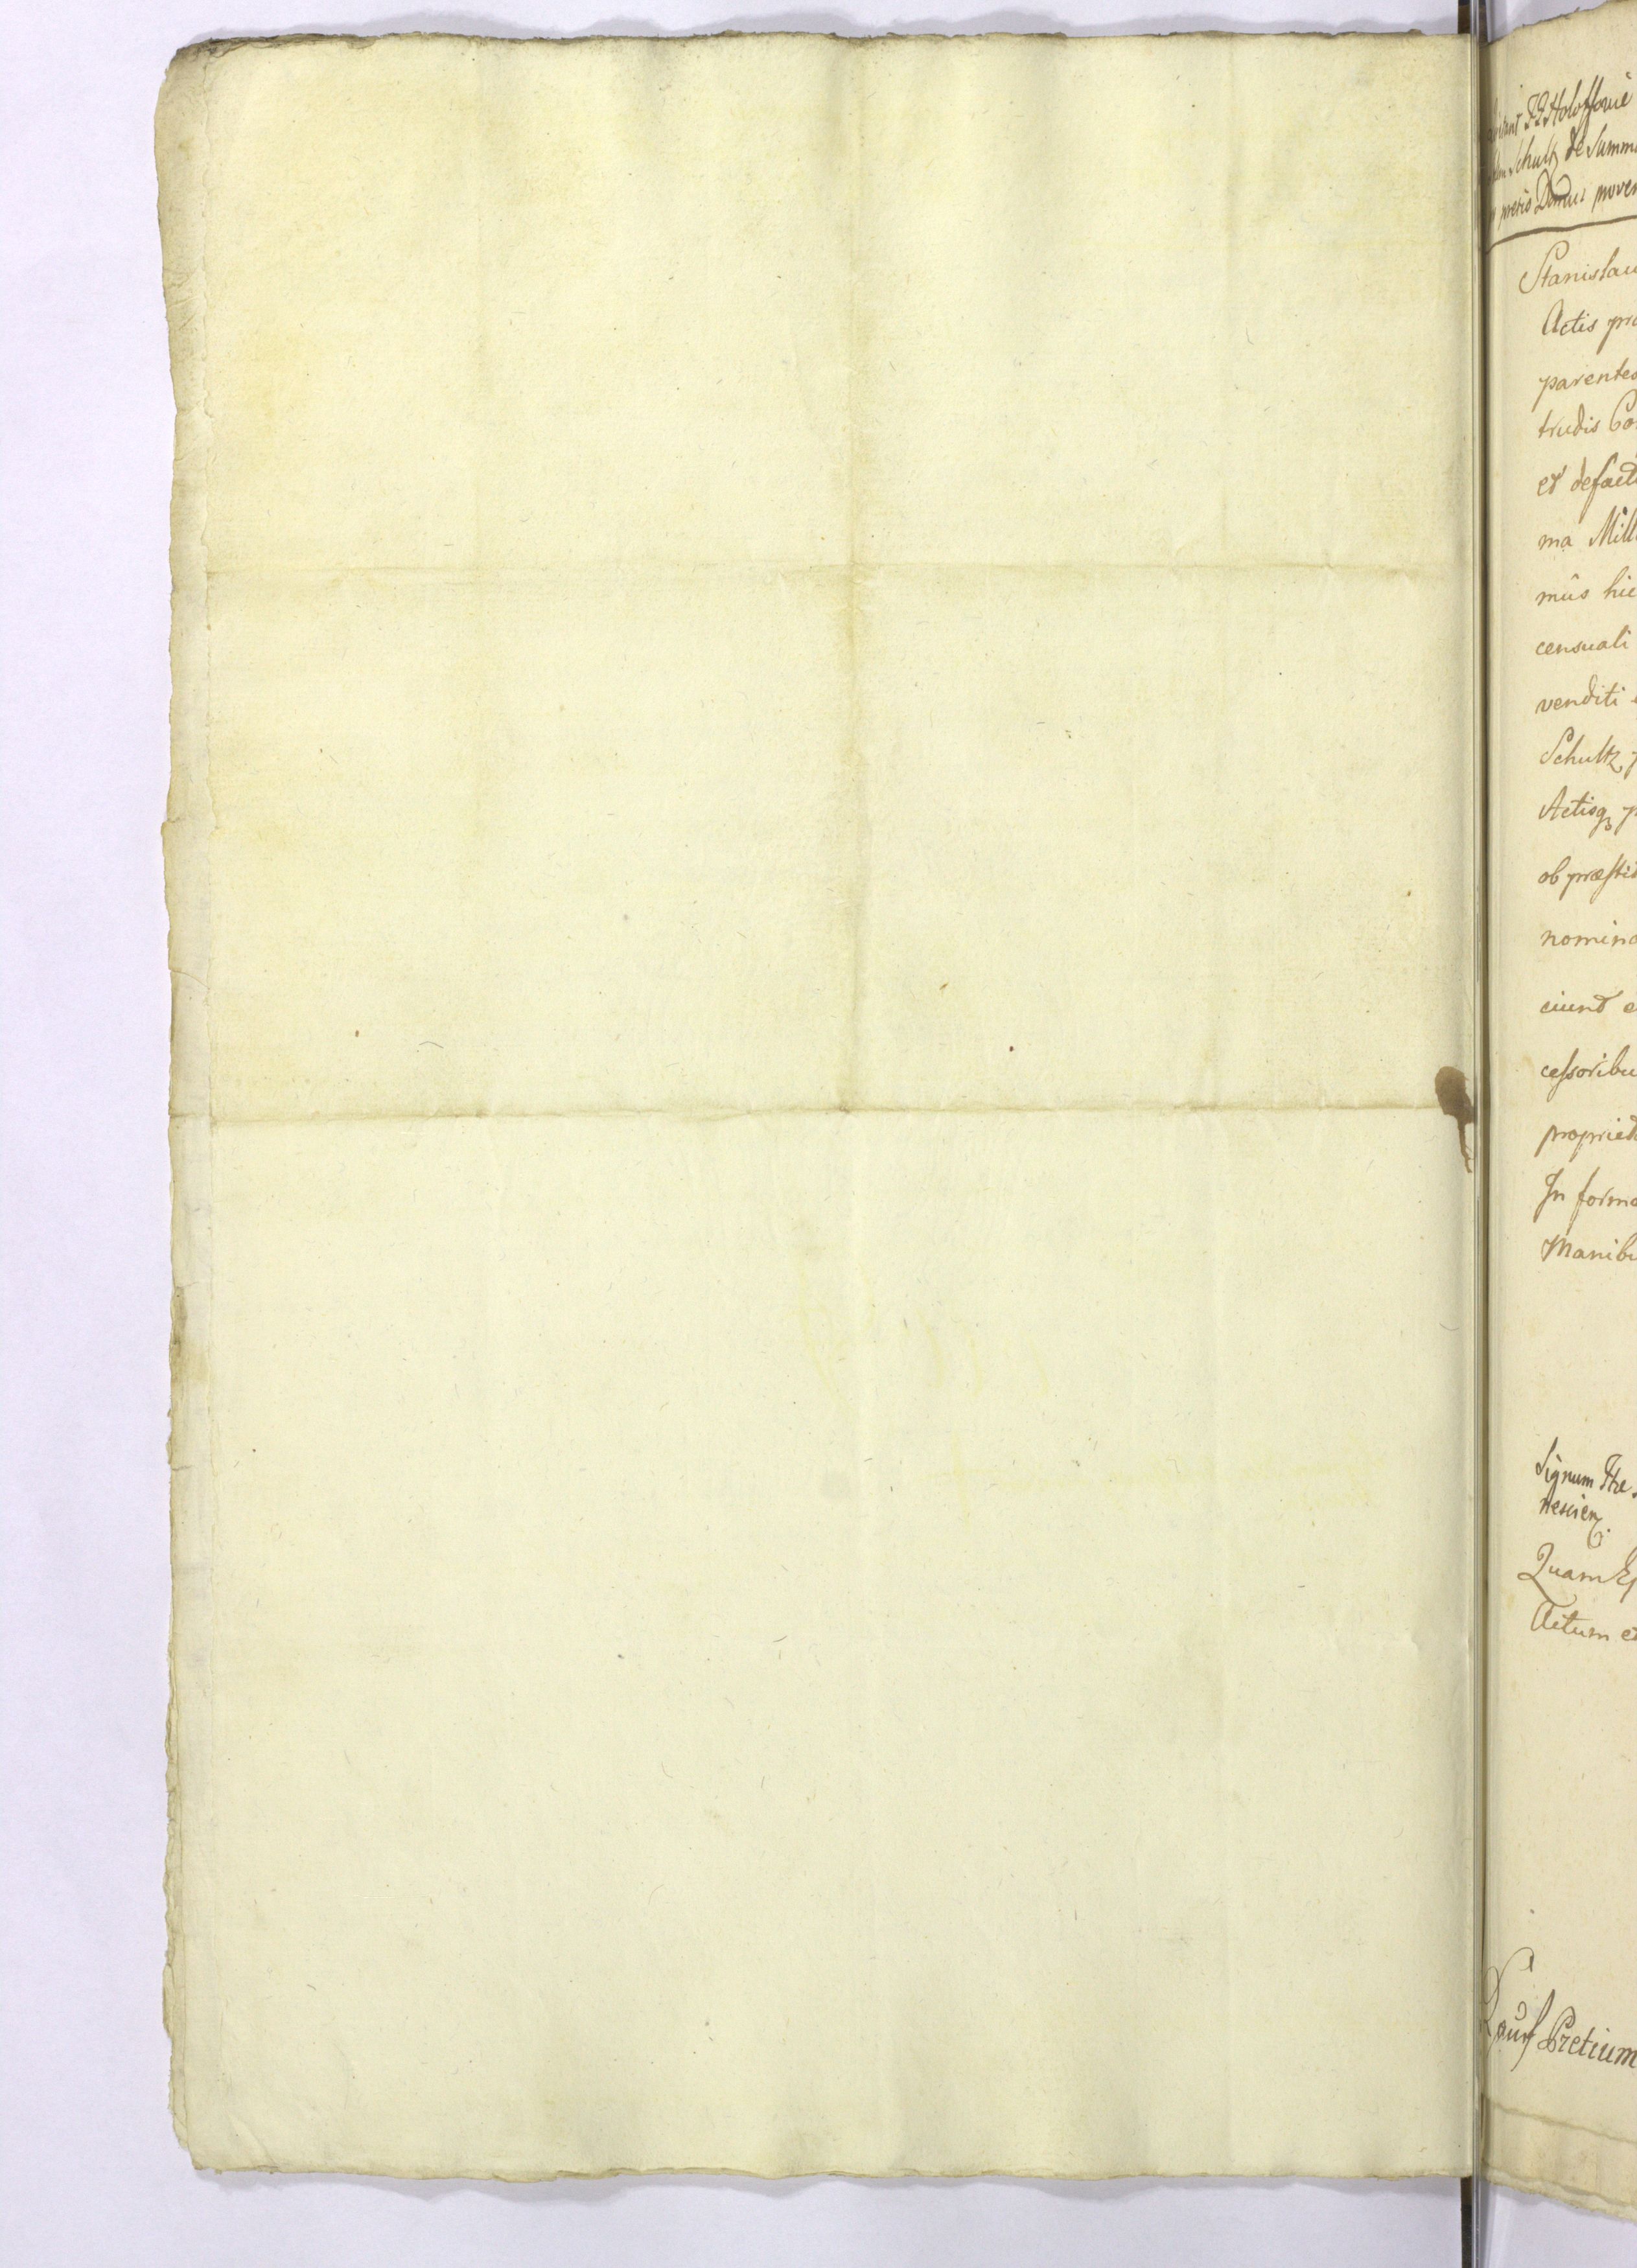 Schultz de Summ
pretio Domus prove
Stanislau
Actis pr
parentes
trudis Co
et defact
ma Mill
mûs hic
censuali
venditi
Schultz
Actisq p
ob præstit
nomina
ciunt e
cessoribu
propriet
In forma
Manibu
Signum
nescien
Quam
Actum e
Pretium